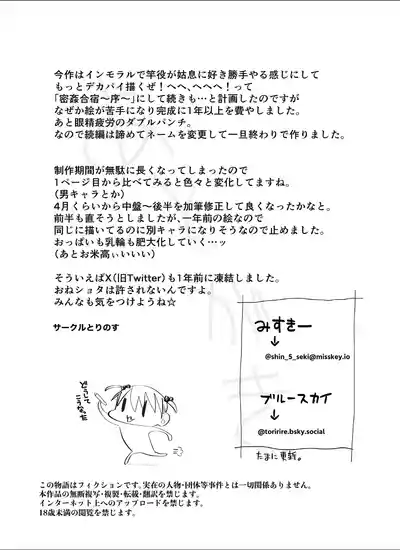 今作はインモラルで竿役が姑息に好き勝手やる感じにして
もっとデカパイ描くぜ!へへ、へへへ!って
「密姦合宿~序~」にして続きも…と計画したのですが
なぜか絵が苦手になり完成に1年以上を費やしました。
あと眼精疲労のダブルパンチ。
なので続編は諦めてネームを変更して一旦終わりで作りました。
制作期間が無駄に長くなってしまったので
1ページ目から比べてみると色々と変化してますね。
(男キャラとか)
4月くらいから中盤~後半を加筆修正して良くなったかなと。
前半も直そうとしましたが、一年前の絵なので
同じに描いてるのに別キャラになりそうなので止めました。
おっぱいも乳輪も肥大化していく…ッ
(あとお米高ぃいいい)
そういえばX(旧Twitter)も1年前に凍結しました。
おねショタは許されないんですよ。
みんなも気をつけようね☆
サークルとりのす
みすきー
↓
@shin_5_seki@misskey.io
ブルースカイ
↓
@toririre.bsky.social
たまに更新。
この物語はフィクションです。実在の人物・団体等事件とは一切関係ありません。
本作品の無断複写・複製・転載・翻訳を禁じます。
インターネット上へのアップロードを禁じます。
18歳未満の閲覧を禁じます。